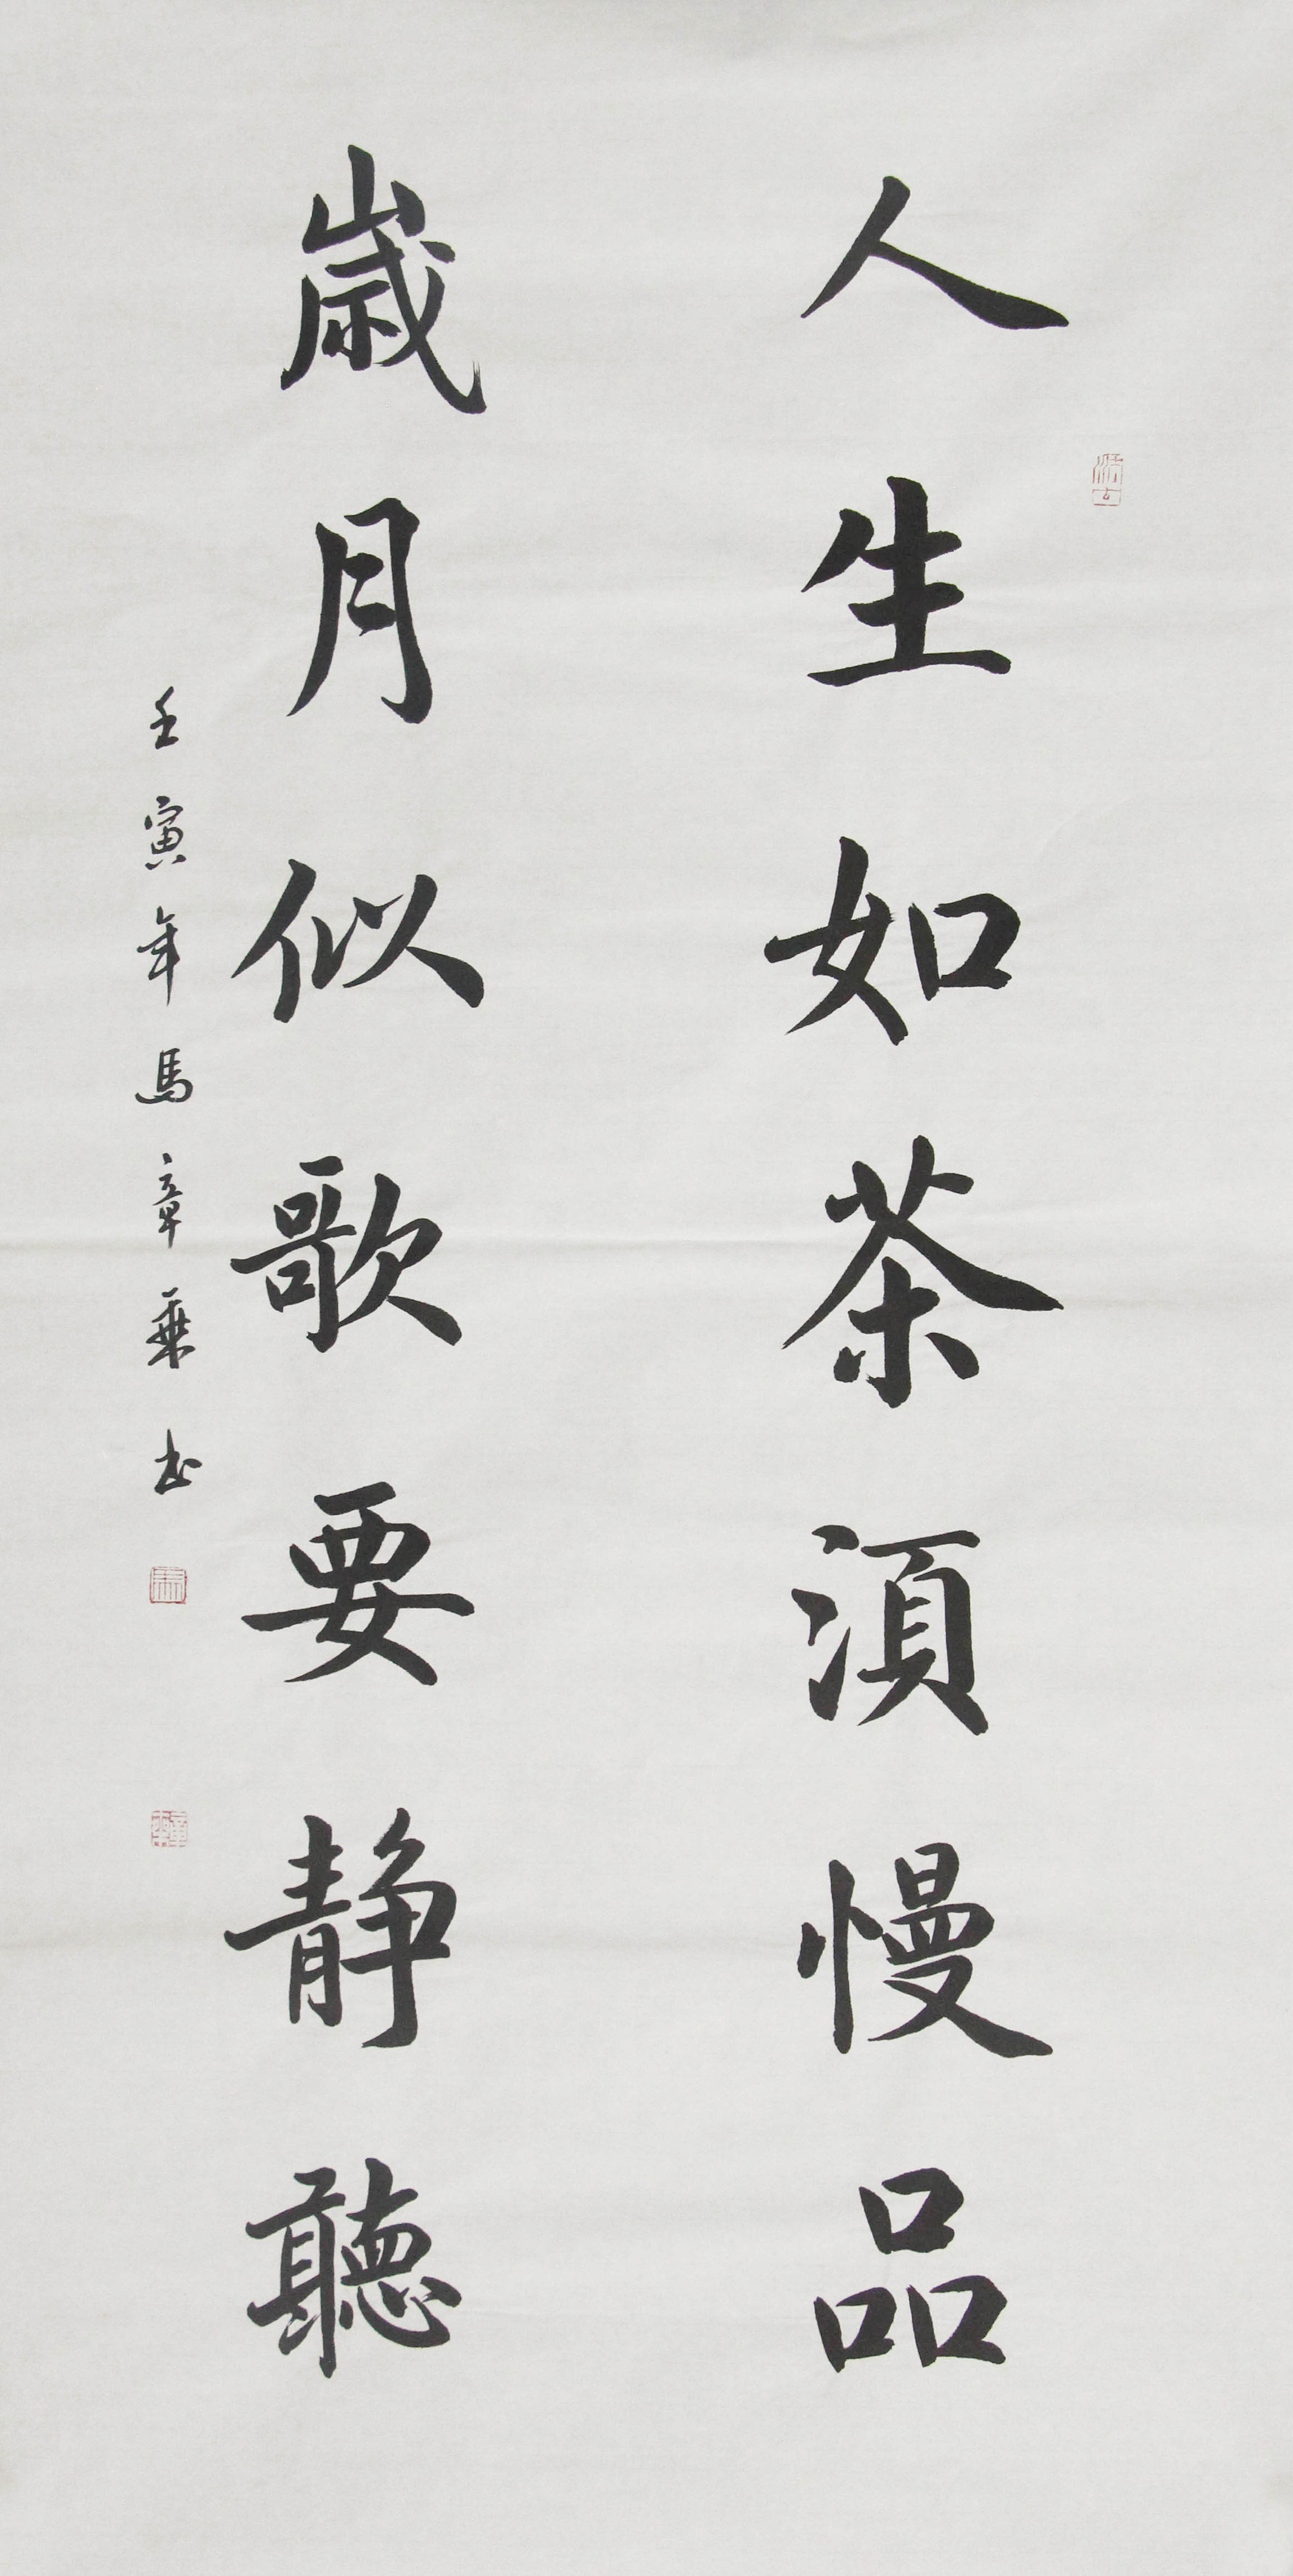 人生如茶須慢品
歲月似歌要靜聽
壬寅年馬章乘書